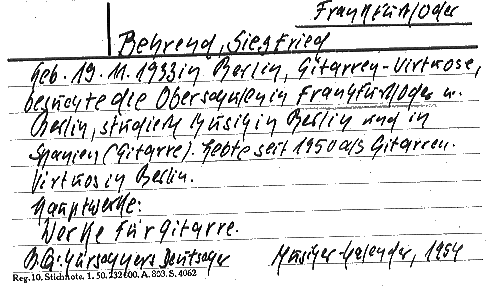 Frankfurt/Oder
Behrend, Siegfried
Geb. 19. 11. 1933 in Berlin, Gitarren-Virtuose,
besuchte die Oberschulen in Frankfurt/Oder u.
Berlin, studierte Musik in Berlin und in
Spanien (Gitarre). Lebte seit 1950 als Gitarren-
Virtuos in Berlin.
Hauptwerke:
Werke für Gitarre.
B.Q.: Kürschners Deutscher Musiker-Kalender, 1954
Reg. 10. Stichnote. 1. 50. 232600. A. 803. S. 4062